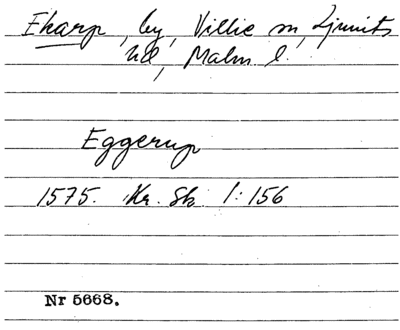 Eharp, by, Villie sn, Ljunits
hd, Malm. l.
Eggerup
1575. Kr. Sk 1:156
Nr 5668.